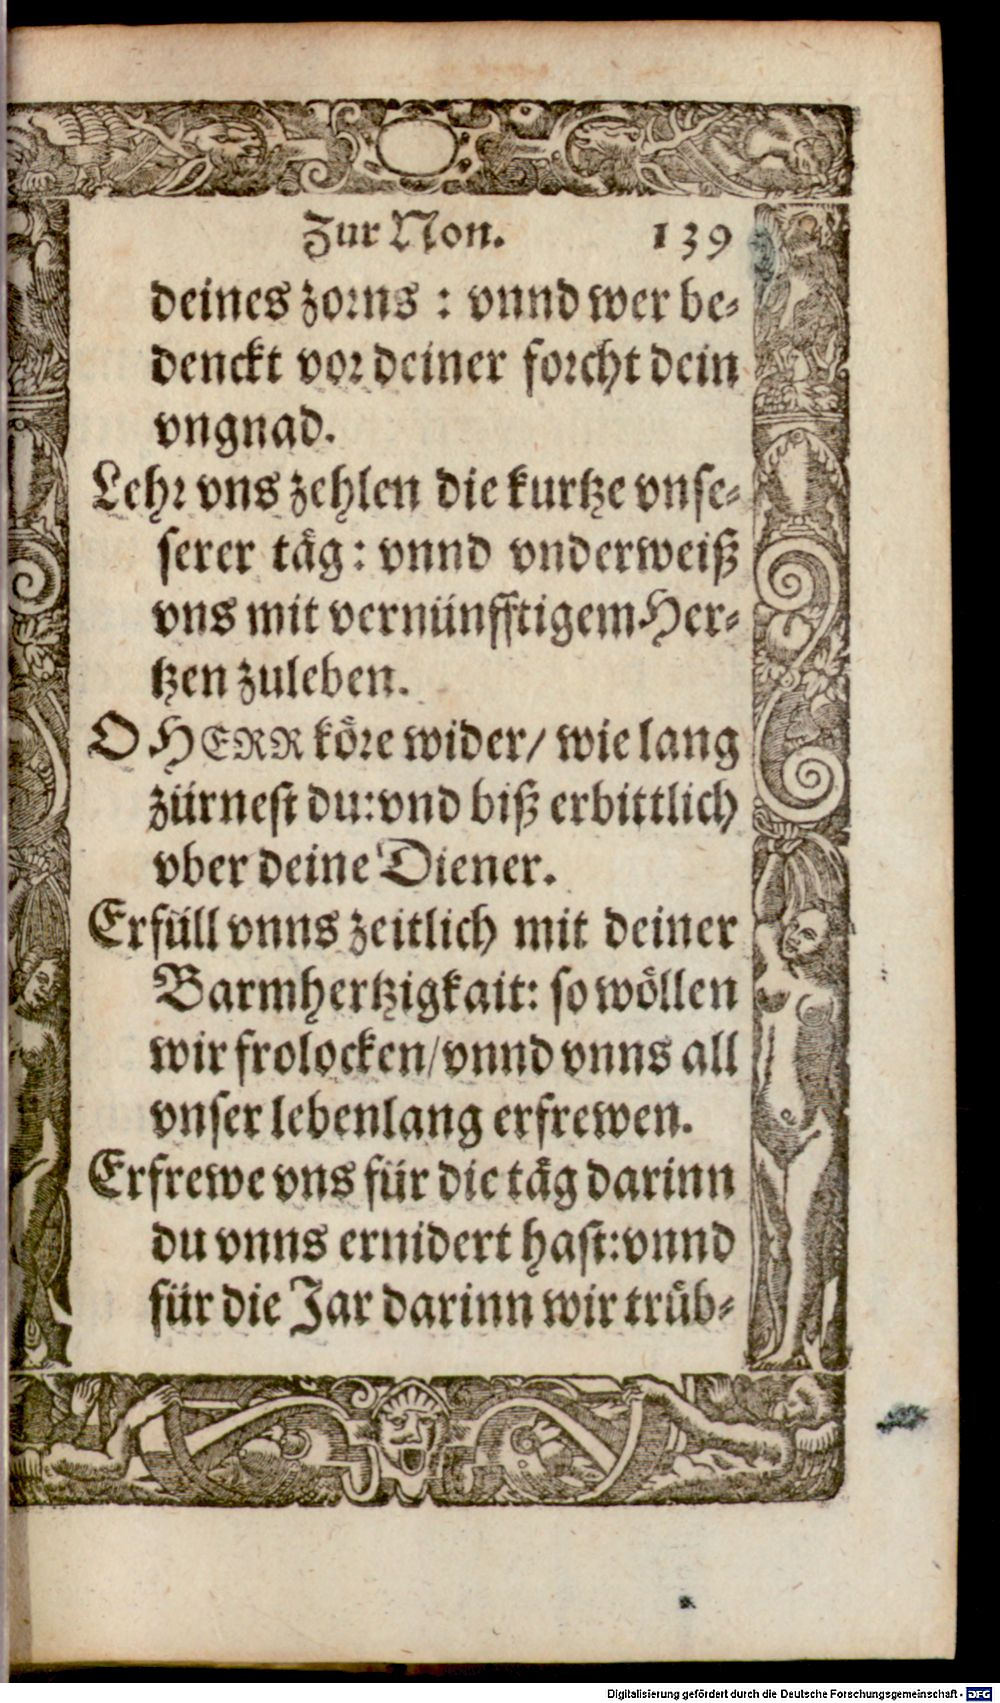 Zur Non. 139
deines zorns : vnnd wer be-
denckt vor deiner forcht dein
vngnad.
Lehr vns zehlen die kurtze vnse-
serer täg : vnnd vnderweiß
vns mit vernünfftigem Her-
tzen zuleben.
O HERR köre wider/ wie lang
zürnest du: vnd biß erbittlich
vber deine Diener.
Erfüll vnns zeitlich mit deiner
Barmhertzigkait: so wöllen
wir frolocken/ vnnd vnns all
vnser lebenlang erfrewen.
Erfrewe vns für die täg darinn
du vnns ernidert hast: vnnd
für die Jar darinn wir trüb-
Digitalisierung gefördert durch die Deutsche Forschungsgemeinschaft - DFG